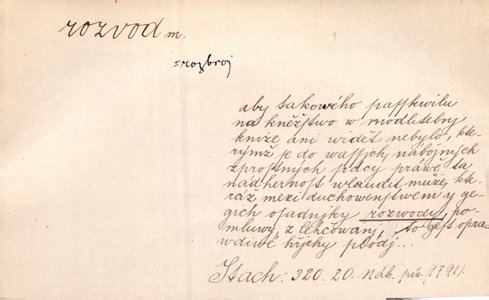 rozvod m.
= rozbroj
aby takowého passkwilu
na kněžstwo w modlitebny
knize ani widět nebylo, kte-
rýmž se do wassjch nábožných
zprostných srdcy práwě ta
nádhernost wlaudit může, kte-
ráž mezi duchowenstwem y ge-
gich osadnjky rozwody, po-
mluwy, z lehčowanj, to gest opra-
wdiwé hřjchy plodj...
Stach: 320. 20. Náb. pís. (1791).